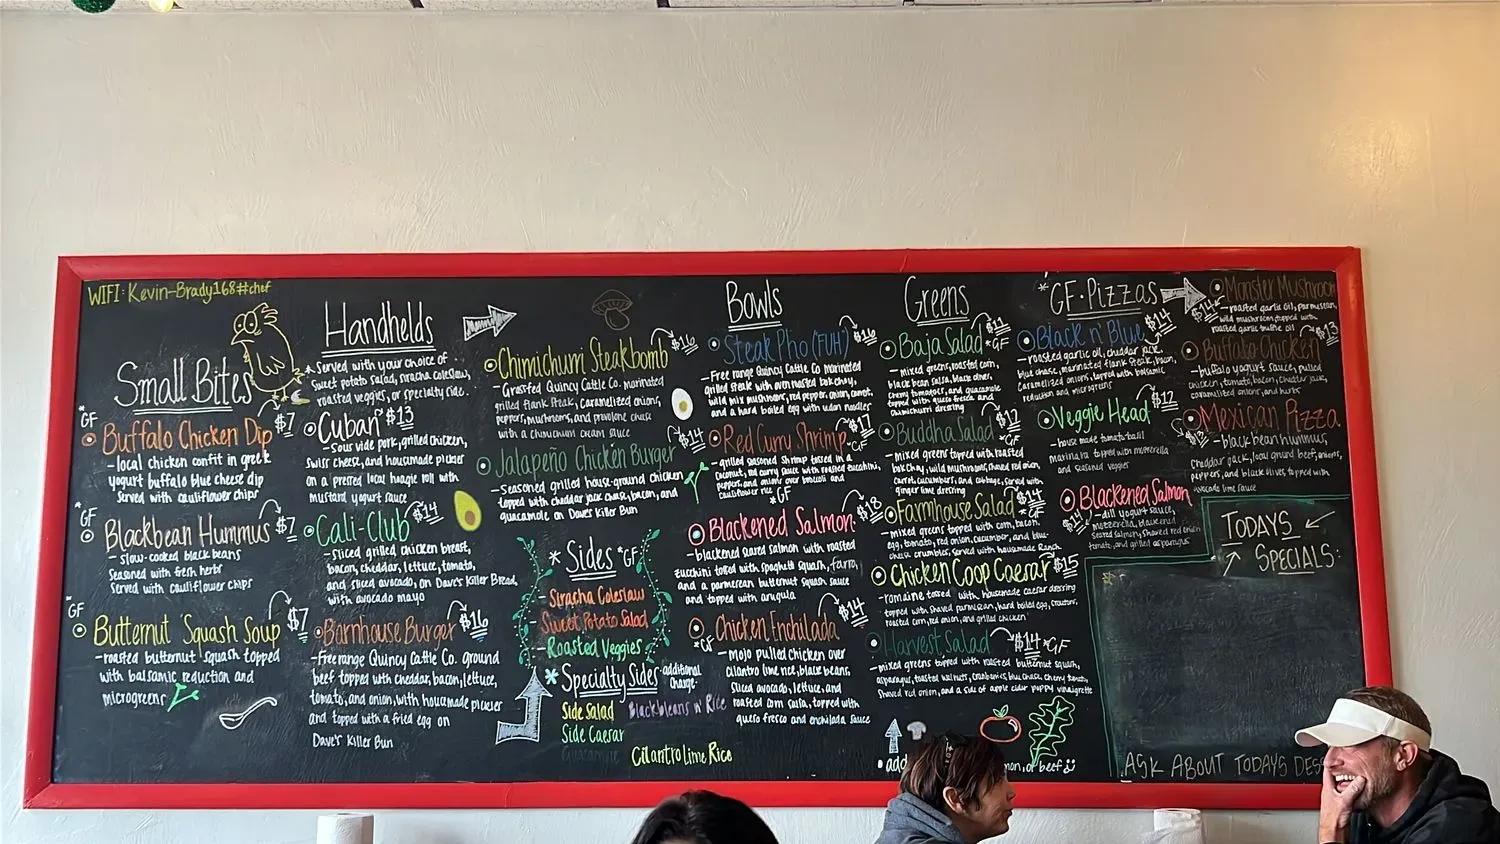 WIFI: Kevin-Brady168#chef
Small Bites
*GF
Buffalo Chicken Dip $7
-local chicken confit in greek
yogurt buffalo blue cheese dip
served with cauliflower chips
*GF
Blackbean Hummus $7
-slow-cooked black beans
seasoned with fresh herbs
served with cauliflower chips
*GF
Butternut Squash Soup $7
-roasted butternut squash topped
with balsamic reduction and
microgreens
Handhelds
*Served with your choice of
sweet potato salad, siracha coleslaw,
roasted veggies, or specialty side.
Cuban $13
-sous vide pork, grilled chicken,
swiss cheese, and housemade pickles
on a pressed local hoagie roll with
mustard yogurt sauce
Cali-Club $14
-sliced grilled chicken breast,
bacon, cheddar, lettuce, tomato,
and sliced avocado, on Dave's Killer Bread,
with avocado mayo
Barnhouse Burger $16
-Free range Quincy Cattle Co. ground
beef topped with cheddar, bacon, lettuce,
tomato, and onion, with housemade pickles
and topped with a fried egg on
Dave's Killer Bun
Chimichurri Steakbomb $16
-Grassfed Quincy Cattle Co. marinated
grilled flank steak, caramelized onions,
peppers, mushrooms, and provolone cheese
with a chimichurri cream sauce
Jalapeño Chicken Burger $14
-seasoned grilled house-ground chicken
topped with cheddar jack cheese, bacon, and
guacamole on Dave's Killer Bun
*Sides *GF
-Siracha Coleslaw
-Sweet Potato Salad
-Roasted Veggies
*Specialty Sides -additional
charge-
Side Salad Blackbeans n' Rice
Side Caesar
Guacamole Cilantro Lime Rice
Bowls
Steak Pho (FUH) $16
-Free range Quincy Cattle Co marinated
grilled steak with oven roasted bok choy,
wild mix mushrooms, red pepper, onion, carrot,
and a hard boiled egg with udon noodles
Red Curry Shrimp $17
*GF
-grilled seasoned shrimp tossed in a
coconut, red curry sauce with roasted zucchini,
peppers, and onions over broccoli and
cauliflower rice
*GF
Blackened Salmon $18
-blackened seared salmon with roasted
zucchini tossed with spaghetti squash, farro,
and a parmesean butternut squash sauce
and topped with arugula
*GF Chicken Enchilada $14
-Mojo pulled chicken over
cilantro lime rice, black beans,
sliced avocado, lettuce, and
roasted corn salsa, topped with
queso fresco and enchilada sauce
Greens
Baja Salad $11 *GF
-mixed greens, roasted corn,
black bean salsa, black olives,
cherry tomatoes, and guacamole
topped with queso fresco and
chimichurri dressing
Buddha Salad $12 *GF
-mixed greens topped with roasted
bok choy, wild mushrooms, shaved red onion,
carrots, cucumber, and cabbage, served with
ginger lime dressing
Farmhouse Salad $14 *GF
-mixed greens topped with corn, bacon,
egg, tomato, red onion, cucumber, and blue-
cheese crumbles, served with housemade Ranch
Chicken Coop Caesar $15
-romaine tossed with housemade caesar dressing
topped with shaved parmesian, hard boiled egg, croutons,
roasted corn, red onion, and grilled chicken
Harvest Salad $14 *GF
-mixed greens topped with roasted butternut squash,
asparagus, toasted walnuts, cranberries, blue cheese, cherry tomato,
shaved red onion, and a side of apple cider poppy vinaigrette
• add
or beef
*GF-Pizzas
Black n' Blue $14
-roasted garlic oil, cheddar jack,
blue cheese, marinated flank steak, bacon,
caramelized onions, topped with balsamic
reduction and microgreens
Veggie Head $12
-house made tomato basil
marinara topped with mozzerella
and seasoned veggies
Blackened Salmon
$14 -dill yogurt sauce,
mozzerella, blackened
seared salmon, shaved red onion
tomato, and grilled asparagus
Monster Mushroom
$14 -roasted garlic oil, parmesean,
wild mushrooms topped with
roasted garlic truffle oil
Buffalo Chicken $13
-buffalo yogurt sauce, pulled
chicken, tomato, bacon, cheddar jack,
caramelized onions, and herbs
Mexican Pizza
-black bean hummus,
cheddar jack, local ground beef, onions,
peppers, and black olives, topped with
avocado lime sauce
TODAYS
SPECIALS:
ASK ABOUT TODAYS